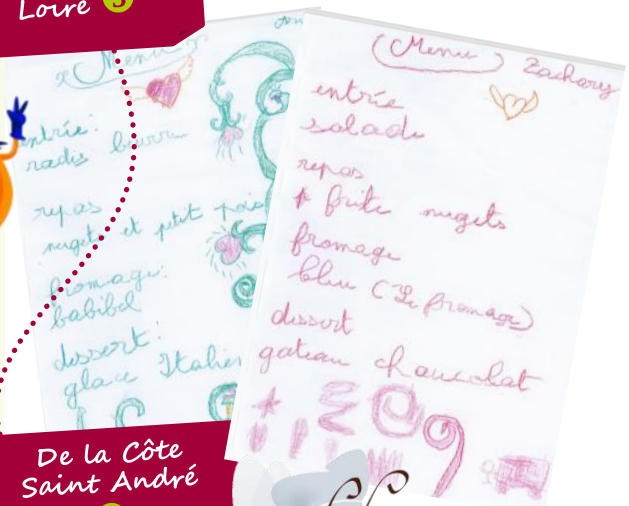 Loire 3
Menu
entrée:
radis beurre
repas
nugets et petit pois
fromage:
babibel
dessert:
glace Italien
Menu Zachary
entrée
salade
repas
frite nugets
fromage
bleu (Le fromage)
dessert
gateau chauchlat
De la Côte
Saint André